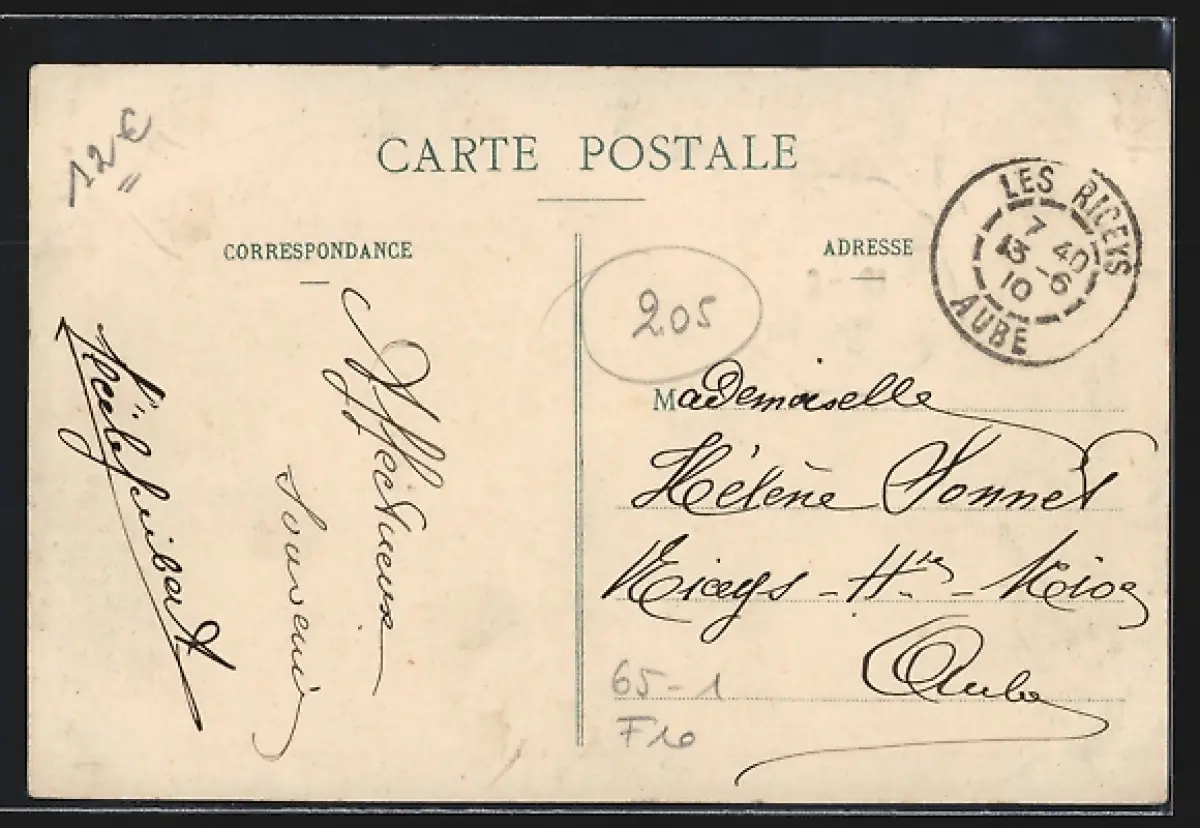 12 €
CARTE POSTALE
CORRESPONDANCE
ADRESSE
LES RICEYS
7 40
13 - 6
10
AUBE
205
Affectueux
Souvenir
Mademoiselle
Hélène Sonnet
Riceys - Hte - Rive
Aube
65-1
F10